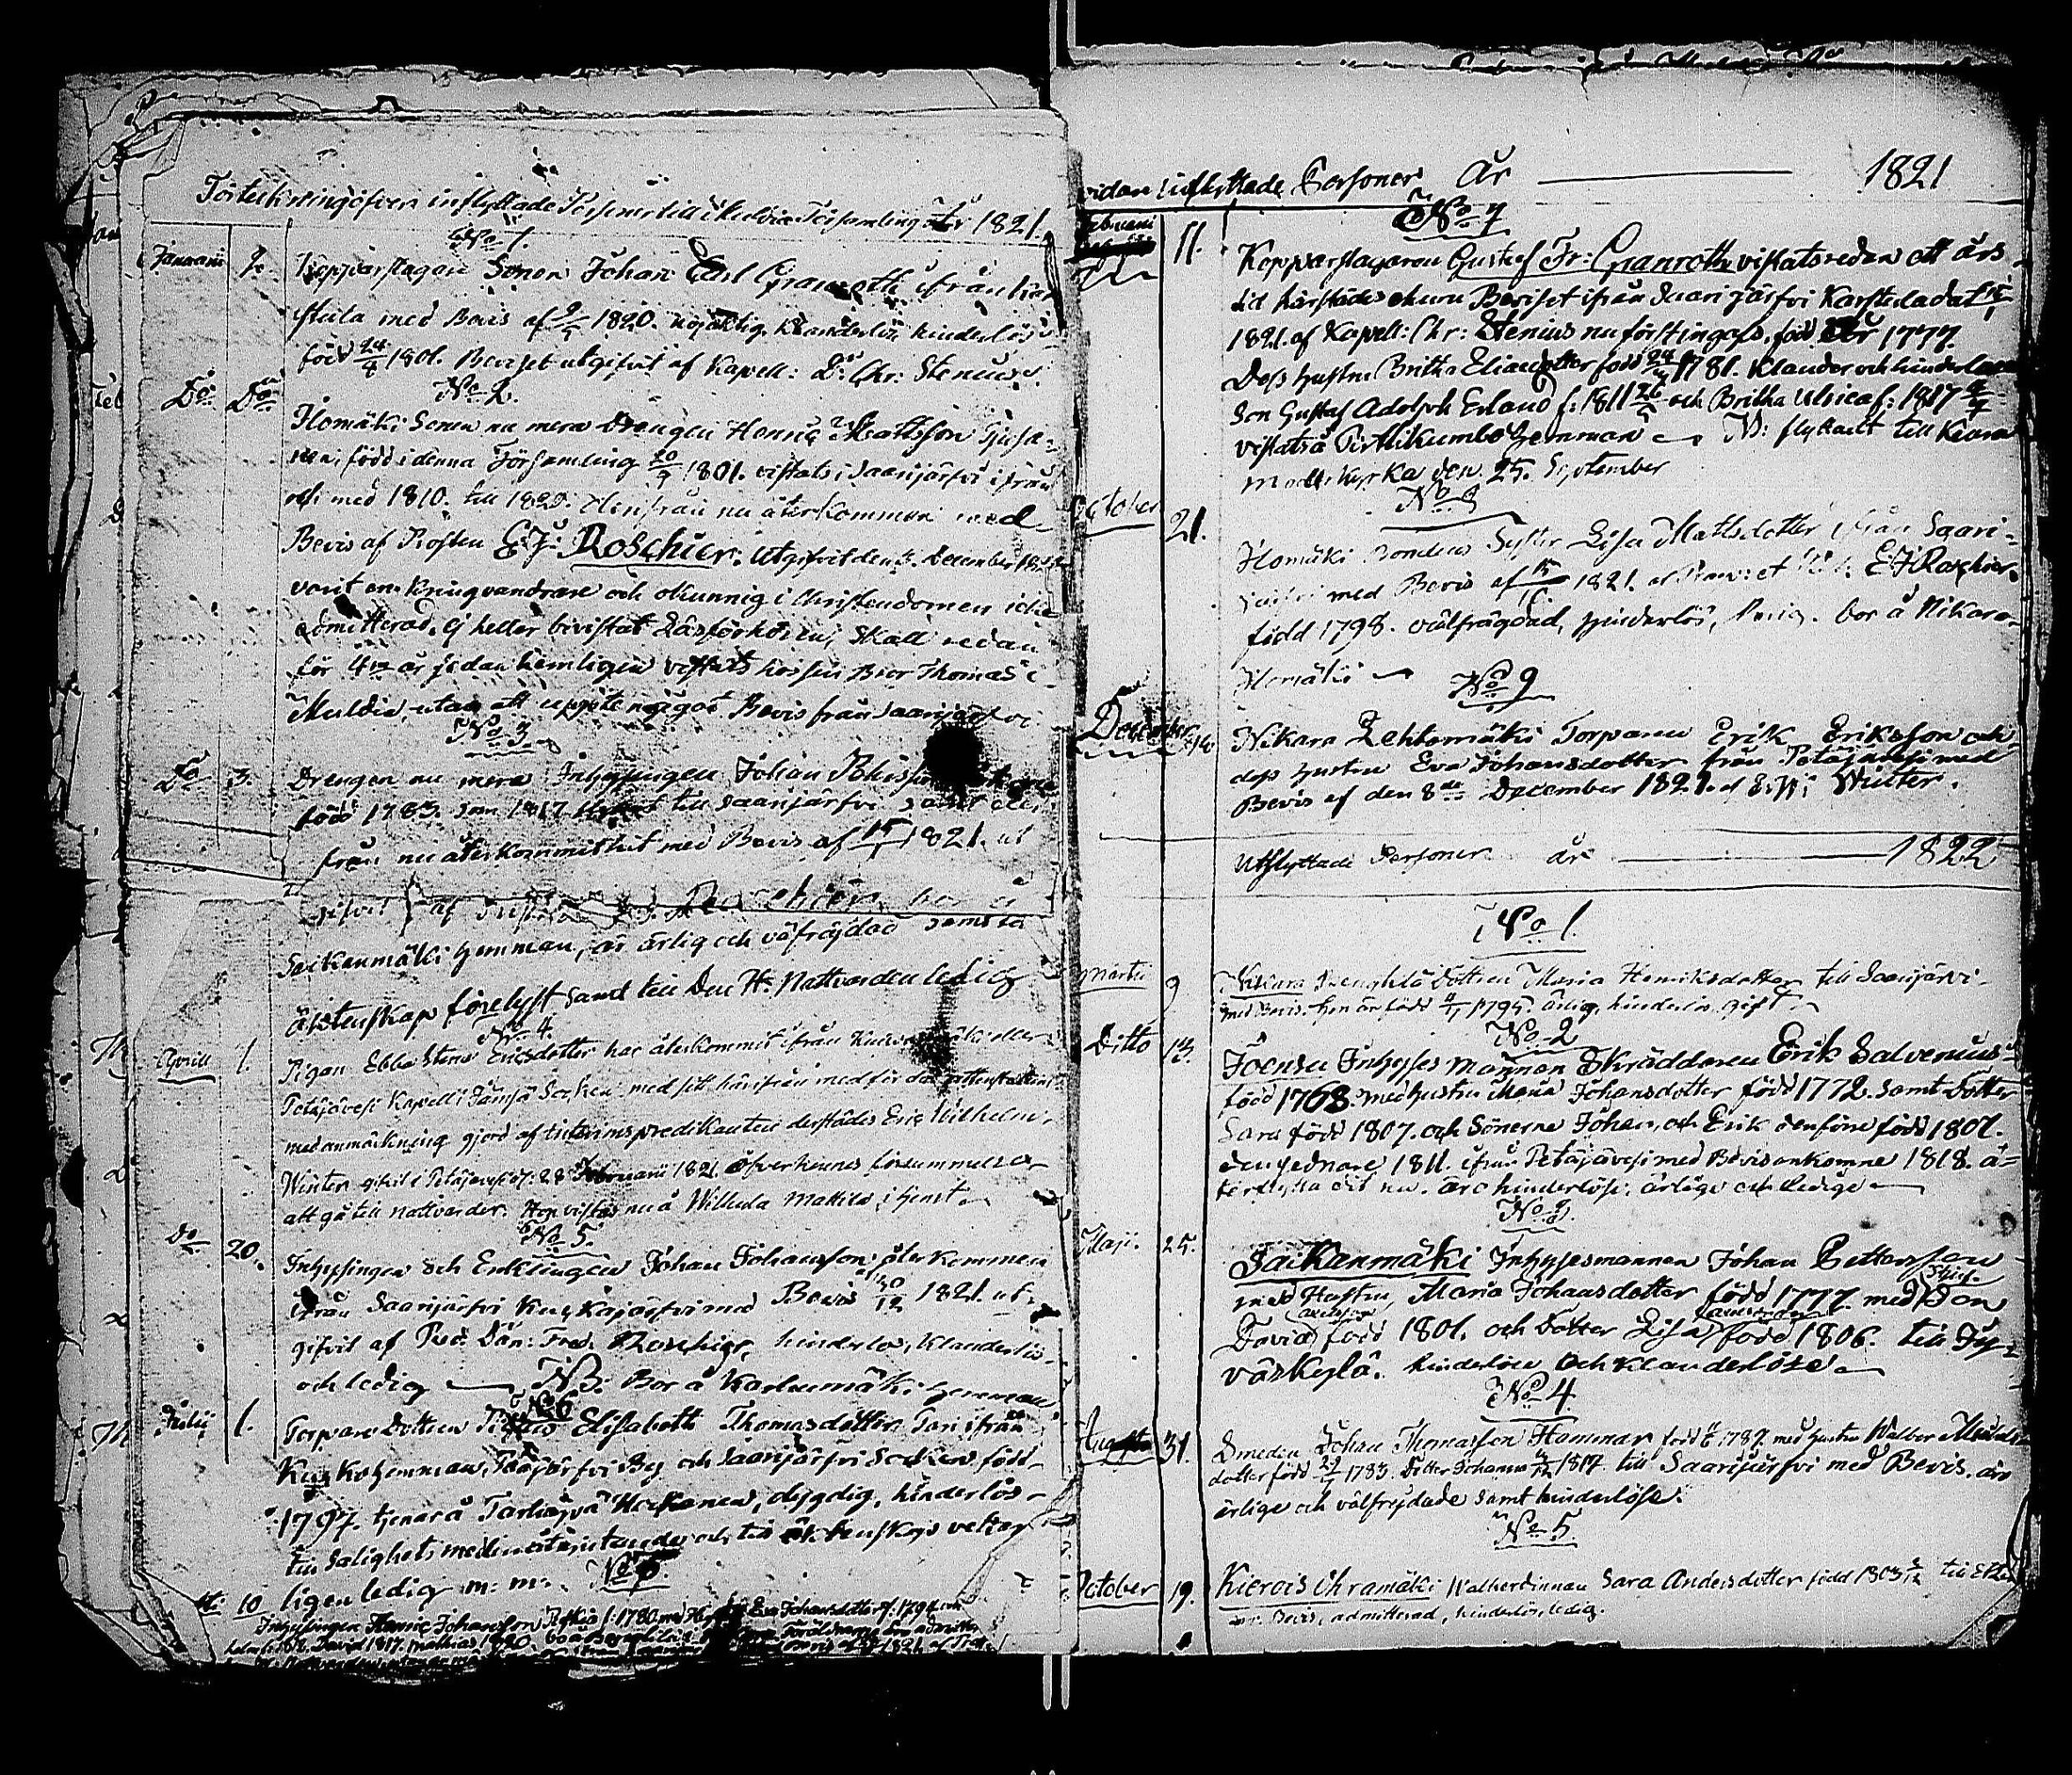 Förteckning öfver inflyttade Personer till Multia Församling År 1821.
No 1.
Januarii 2. Kopparslagare Sonen Johan Carl Granroth ifrån Kar-
stula med Bevis af 1820. klanderlös hinderlös
född 24/8 1801. Beviset utgifvit af Kapell: Dr Chr: Stenius
No 2.
Do Do Homäki Sonen nu mera Drengen Henric Mattsson
född i denna Församling 20/9 1801. vistats i Saarijärfvi ifrån
och med 1810. till 1820. därifrån nu återkommen med
Bevis af Prosten E: J: Roschier. Utgifvit den 3. December
varit en kringvandrare och okunnig i Christendomen icke
admitterad, ej heller bivistat Läsförhören, Skall redan
för år sedan hemligen vistats hos sin Bror Thomas i
Muldia, utan att uppte något Bevis från Saarijärfvi
No 3
Do 3. Drengen nu mera Inhysingen Johan
född 1783. som 1817 till Saarijärfvi samt der-
från nu återkommit hit med Bevis af 15/1 1821. ut
gifvit af Roschier, bor å
Saikanmäki hemman, är ärlig och väfräjdad samt till
äktenskap förelyst samt till Den H: Nattvarden ledig
No 4
Aprill 1. Pigan Ebba Stina Ericsdotter har återkommit ifrån
Petäjävesi Kapell i Jämsä Sochen med sitt härifrån medförda attestatum
med anmärkning gjord af tinterimspredikanten derstädes Eric Wilhelm
Winter gifvit i Petäjävesi d. 28 Februarii 1821 öfver hennes försummelse
att gå till nattvarden. Hon vistas nu å Wilhula Mattila i tjenst
No 5.
Do 20. Inhysingen och Enklingen Johan Johansson återkommen
ifrån Saarijärfvi Kuckajärfvi med Bevis af 20/12 1821. ut-
gifvit af Dan: Fred: Roschier, hinderlös, klanderlös
och ledig — NB: Bor å Karhumäki hemman
No 6
Julii 1. Torpare Dottren Pigan Elisabeth Thomasdotter ifrån
Kuckohemman, Pääjärfvi By och Saarijärfvi Sochen född
1797. tjenar å Tarhapää Hokanen, dygdig, hinderlös
till Salighets medlens åtnjutande och till äktenskaps vettag
ligen ledig m: m:
No 7.
10 Inhysingen Henric Johansson f: 1780 med Hustru Eva Johansdotter f: 1791
David 1817. Mathias 1820.
vidare inflyttade Personer År — 1821
No 7
11. Kopparslagaren Gustaf Fr: Granroth vistats redan ett års
tid härstädes ehuru Beviset ifrån Saarijärfvi Karstula dat
1821. af Kapell: Chr: Stenius nu först ingafs, född År 1777.
Dess hustru Britha Eliaedotter född 1781. Klander och hinderlösa
Son Gustaf Adolph Erland f: 1811 26/5 och Britha Ulrica f: 1817
vistats å Pirttikumbo hemman — NB: flyttadt till
moder kyrka den 25. September
No 8
October 21. Homäki Bondens Syster Lisa Mattsdotter ifrån Saari-
järfvi med Bevis af 15/10 1821. af E J Roschier
född 1798. välfrägdad, hinderlös, ledig. bor å Nikara
Homäki —
No 9
December Nikara Lehtomäki Torparen Erik Eriksson och
dess hustru Eva Johansdotter från Petäjävesi med
Bevis af den 8de December 1821. af E: W: Winter.
Utflyttade Personer år — 1822
No 1.
Martii 9 Nikara Dottren Maria Henriksdotter till Saarijärvi
med Bevis. hon är född 1795. ärlig, hinderlös, gift
No 2
Ditto 13. Joensu Inhyses Mannen Skräddaren Erik Salvenius
född 1768. med hustru Maria Johansdotter född 1772. samt Dotter
Sara född 1807. och Sönerne Johan, och Erik den förre född 1801.
den sednare 1811. ifrån Petäjävesi med Bevis ankomne 1818. å-
terflytta dit nu. äro hinderlöse, ärlige och ledige —
No 3.
Maji. 25. Saikanmäki Inhysesmannen Johan Pettersson
med Hustru Maria Johansdotter född 1777. med Styf Son
David född 1801. och Dotter Lisa född 1806. till Jy-
väskylä. hinderlöse och klanderlöse —
No 4
Augusti 31. Smeden Johan Thomasson Hammar född 1787. med hustru Walbor
dotter född 1783. Dotter Johanna 1817. till Saarijärfvi med Bevis, äro
ärlige och välfrejdade samt hinderlöse.
No 5.
October 19. Kierois Ohramäki Walbordinnan Sara Andersdotter född 1803 till
Bevis, admitterad, hinderlös, ledig.